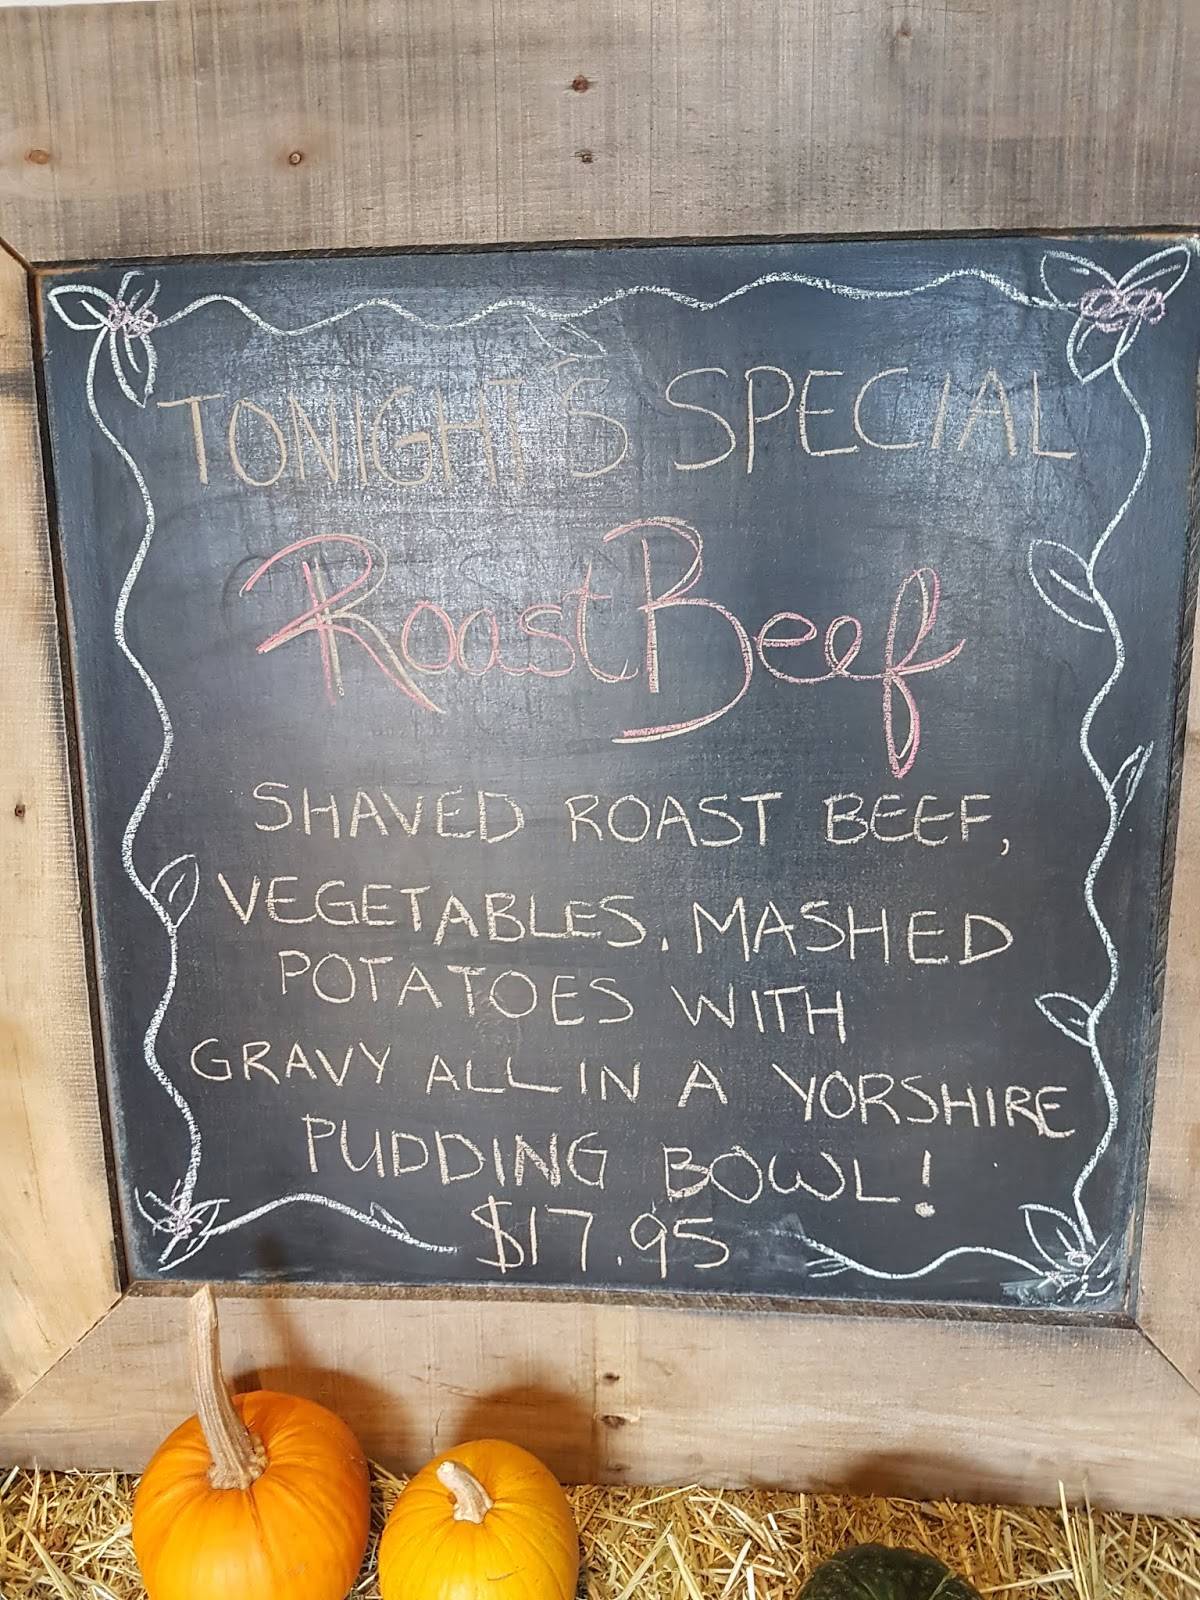 TONIGHT'S SPECIAL
Roast Beef
SHAVED ROAST BEEF,
VEGETABLES. MASHED
POTATOES WITH
GRAVY ALL IN A YORSHIRE
PUDDING BOWL!
$17.95